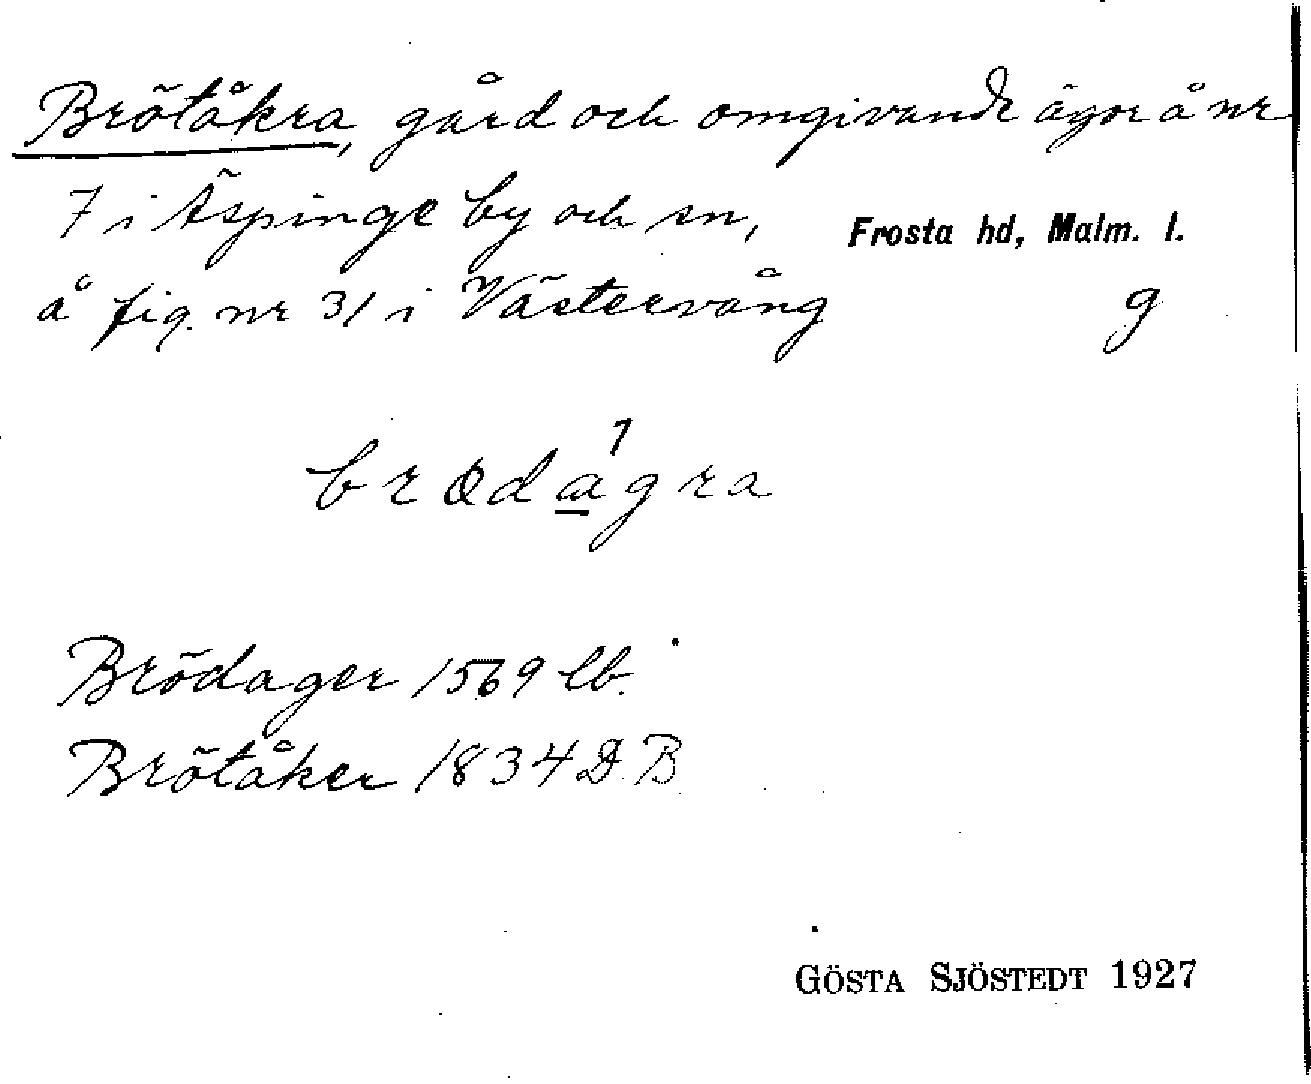 Brötåkra, gård och omgivande ägor å nr
7 i Äspinge by och sn, Frosta hd, Malm. l.
å fig. nr 31 i Västervång g
brødagra
Brödager 1569 lb.
Brötåker 1834 D.B
GÖSTA SJÖSTEDT 1927